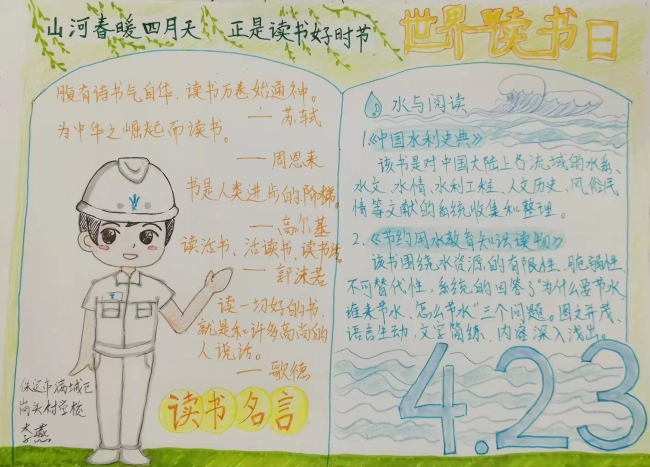 山河春暖四月天 正是读书好时节
世界读书日
腹有诗书气自华，读书万卷始通神。
——苏轼
为中华之崛起而读书。
——周恩来
书是人类进步的阶梯。
——高尔基
读活书、活读书、读书活
——郭沫若
读一切好的书，
就是和许多高尚的
人说话。
——歌德
读书名言
保定市满城区
岗头村学校
李燕
水与阅读
1.《中国水利史典》
该书是对中国大陆上各流域的水系、
水文、水情、水利工程、人文历史、风俗民
情等文献的系统收集和整理。
2.《节约用水教育知识读物》
该书围绕水资源的有限性、脆弱性、
不可替代性，系统的回答了“为什么要节水、
谁来节水、怎么节水”三个问题。图文并茂、
语言生动，文字简练、内容深入浅出。
4.23